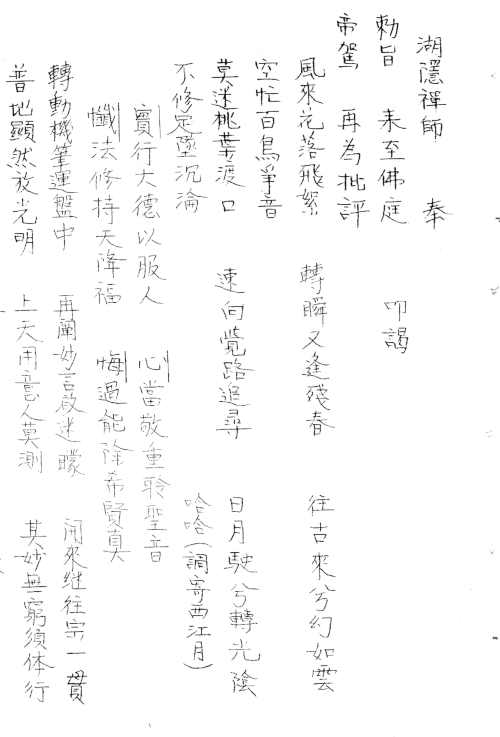 湖隱禪師　奉
勅旨　来至佛庭　叩謁
帝駕　再為批評
風來花落飛絮　轉瞬又逢殘春　往古來兮幻如雲
空忙百鳥爭音
莫迷桃葉渡口　速向覺路追尋　日月駛兮轉光陰
不修定墜沉淪　哈哈(調寄西江月)
實行大德以服人　心當敬重聆聖音
懺法修持天降福　悔過能除希賢真
轉動機筆運盤中　再闡妙言啟迷矇　開來继往宗一貫
普地顯然放光明　上天用意人莫測　其妙無窮須体行